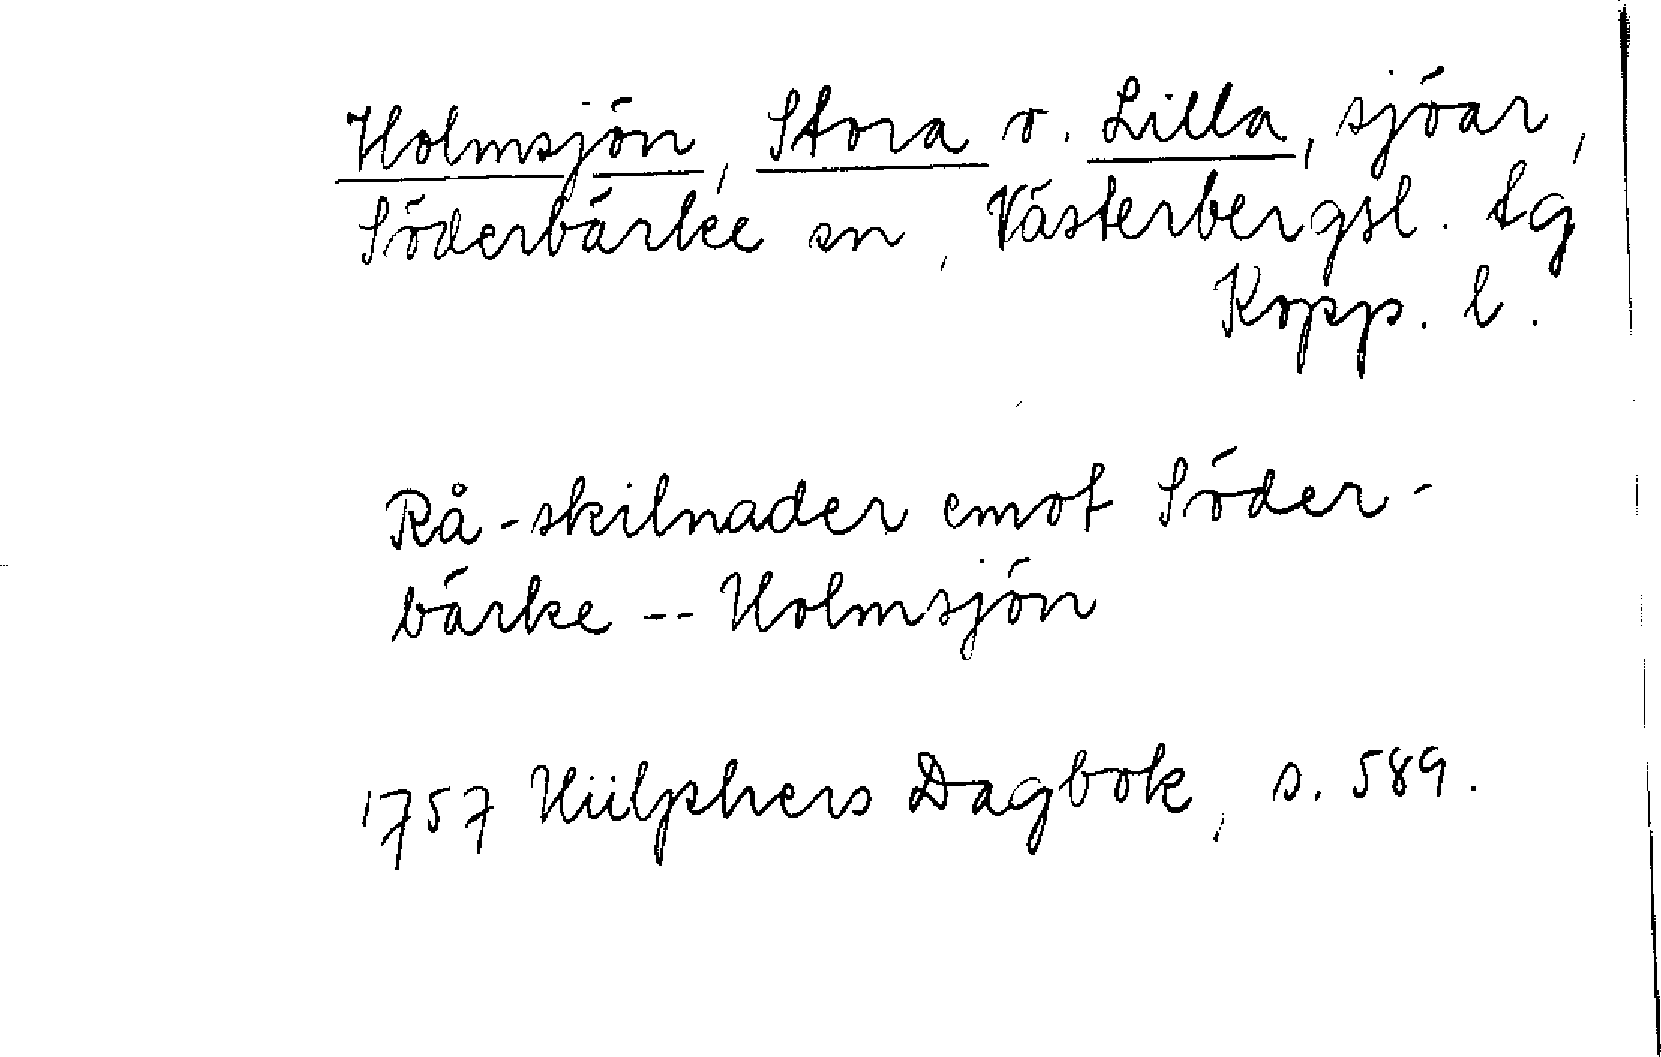 Holmsjön, Stora o. Lilla, sjöar,
Söderbärke sn, Västerbergsl. tg
Kopp. l.
Rå-skilnader emot Söder-
bärke -- Holmsjön
1757 Hülphers Dagbok, s. 589.